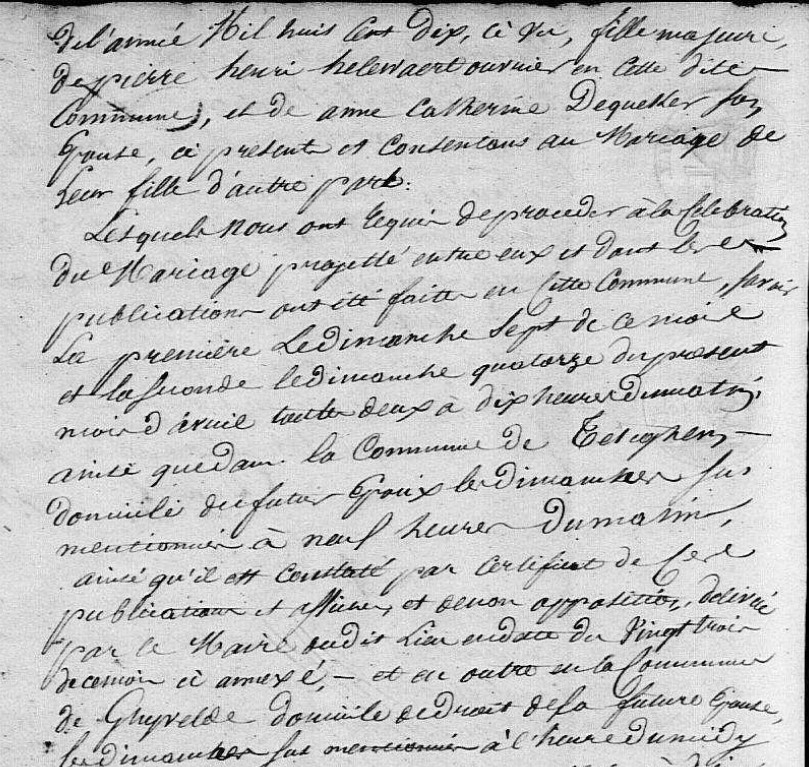 de l'année Mil huit Cent dix, ci vu, fille majeure,
de pierre henri helewaert ouvrier en Cette dite
Commune, et de anne Catherine Dequeker son
Epouse, ci présents et Consentans au Mariage de
Leur fille d'autre part.
Lesquels Nous ont requis de proceder à la Celebration
du Mariage projetté entre eux et dont les
publications ont été faites en Cette Commune, savoir
La première Le dimanche Sept de ce mois
et la seconde le dimanche quatorze du présent
mois d'avril toutes deux à dix heures du matin,
ainsi que dans la Commune de Teteghem
domicile du futur Epoux les dimanches sus
mentionnés à neuf heures du matin,
ainsi qu'il est Constaté par Certificat de Ces
publications et affiches, et de non opposition, delivré
par le Maire dudit Lieu en date du Vingt trois
de ce mois ci annexé, et en outre en la Commune
de Ghyvelde domicile de droit de la future Epouse,
les dimanches sus mentionnés à l'heure du midy